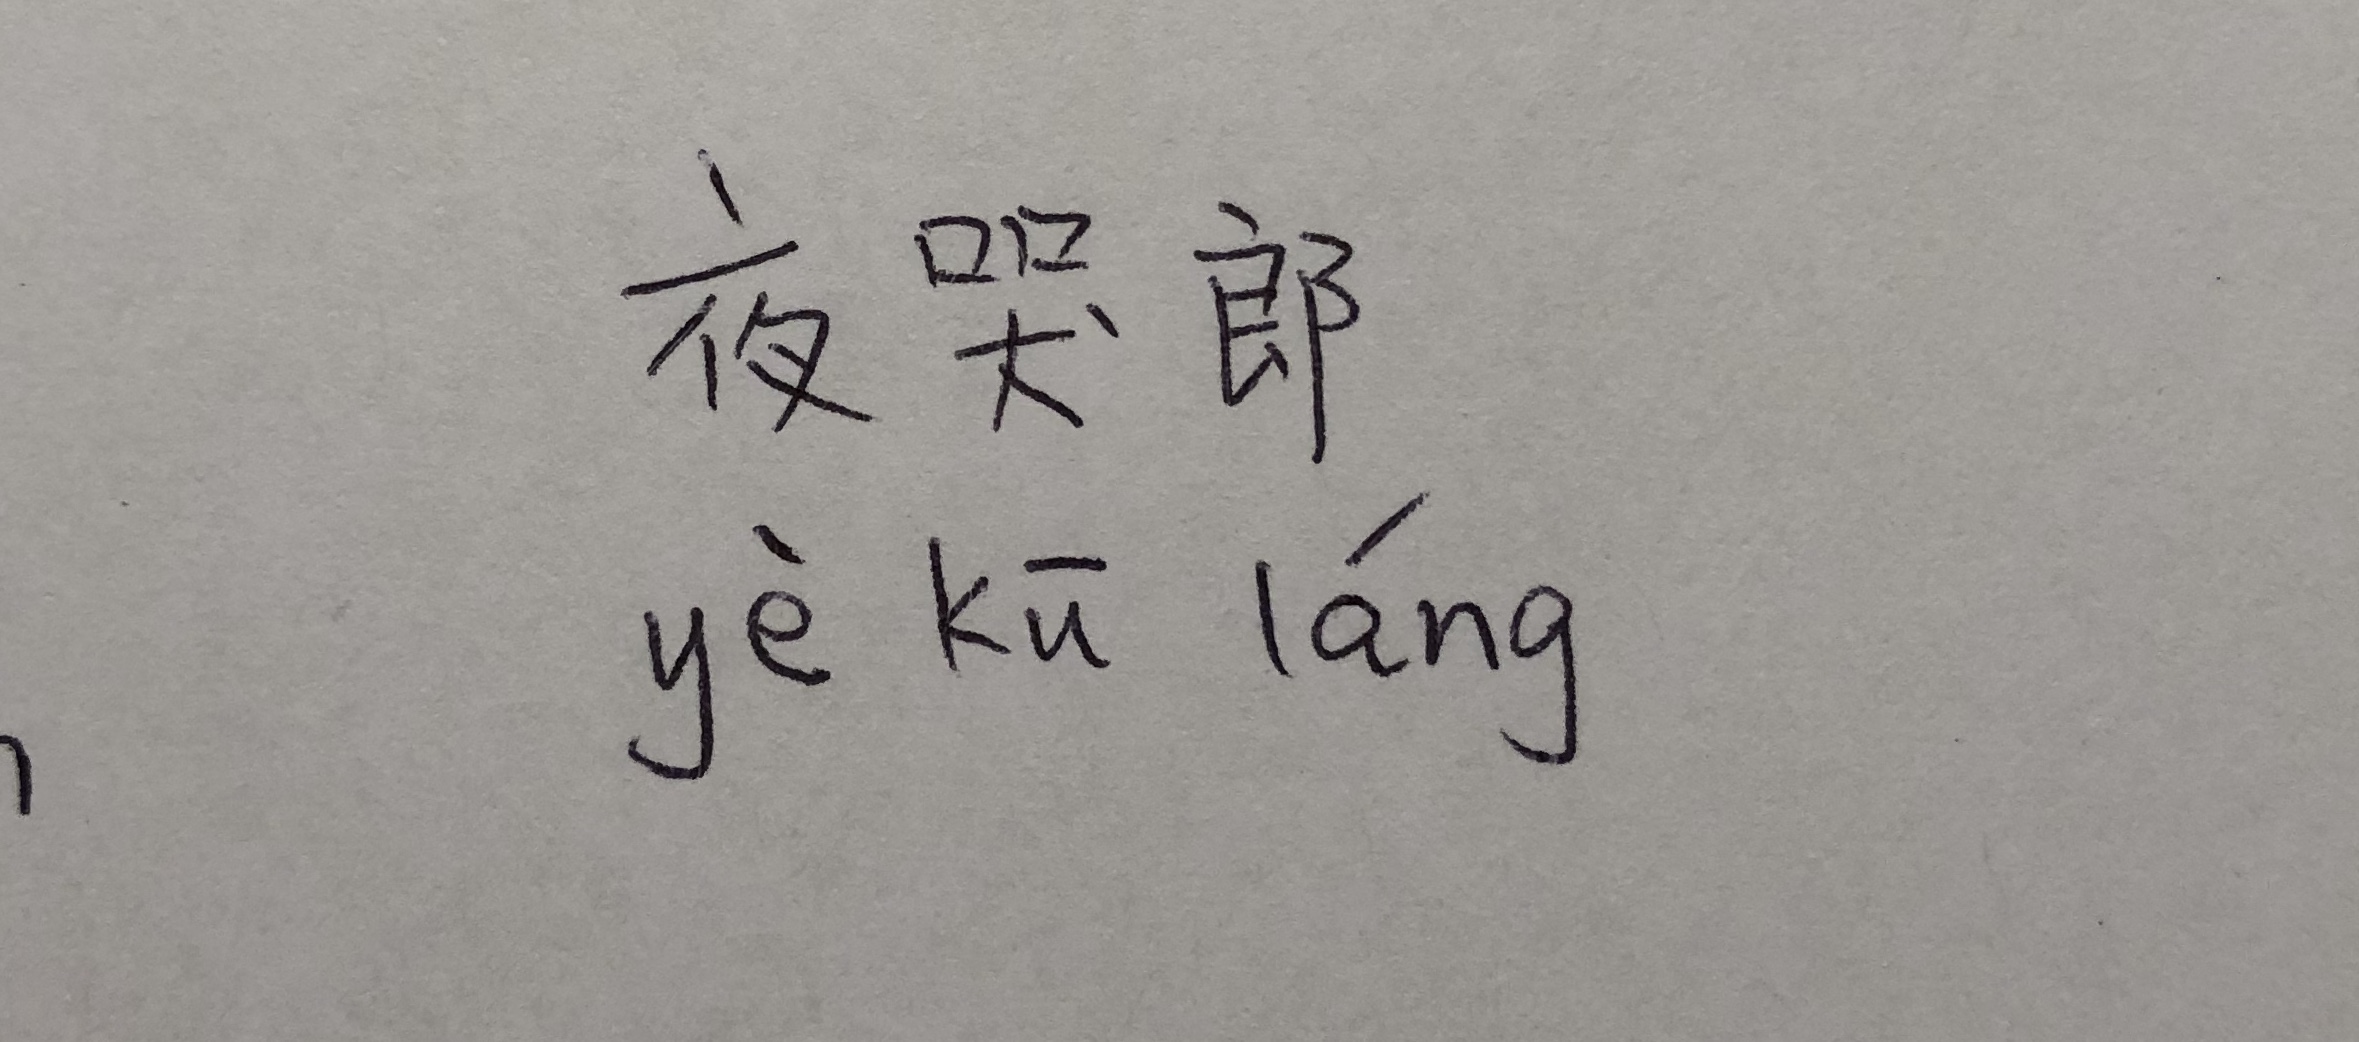 夜哭郎
yè kū láng